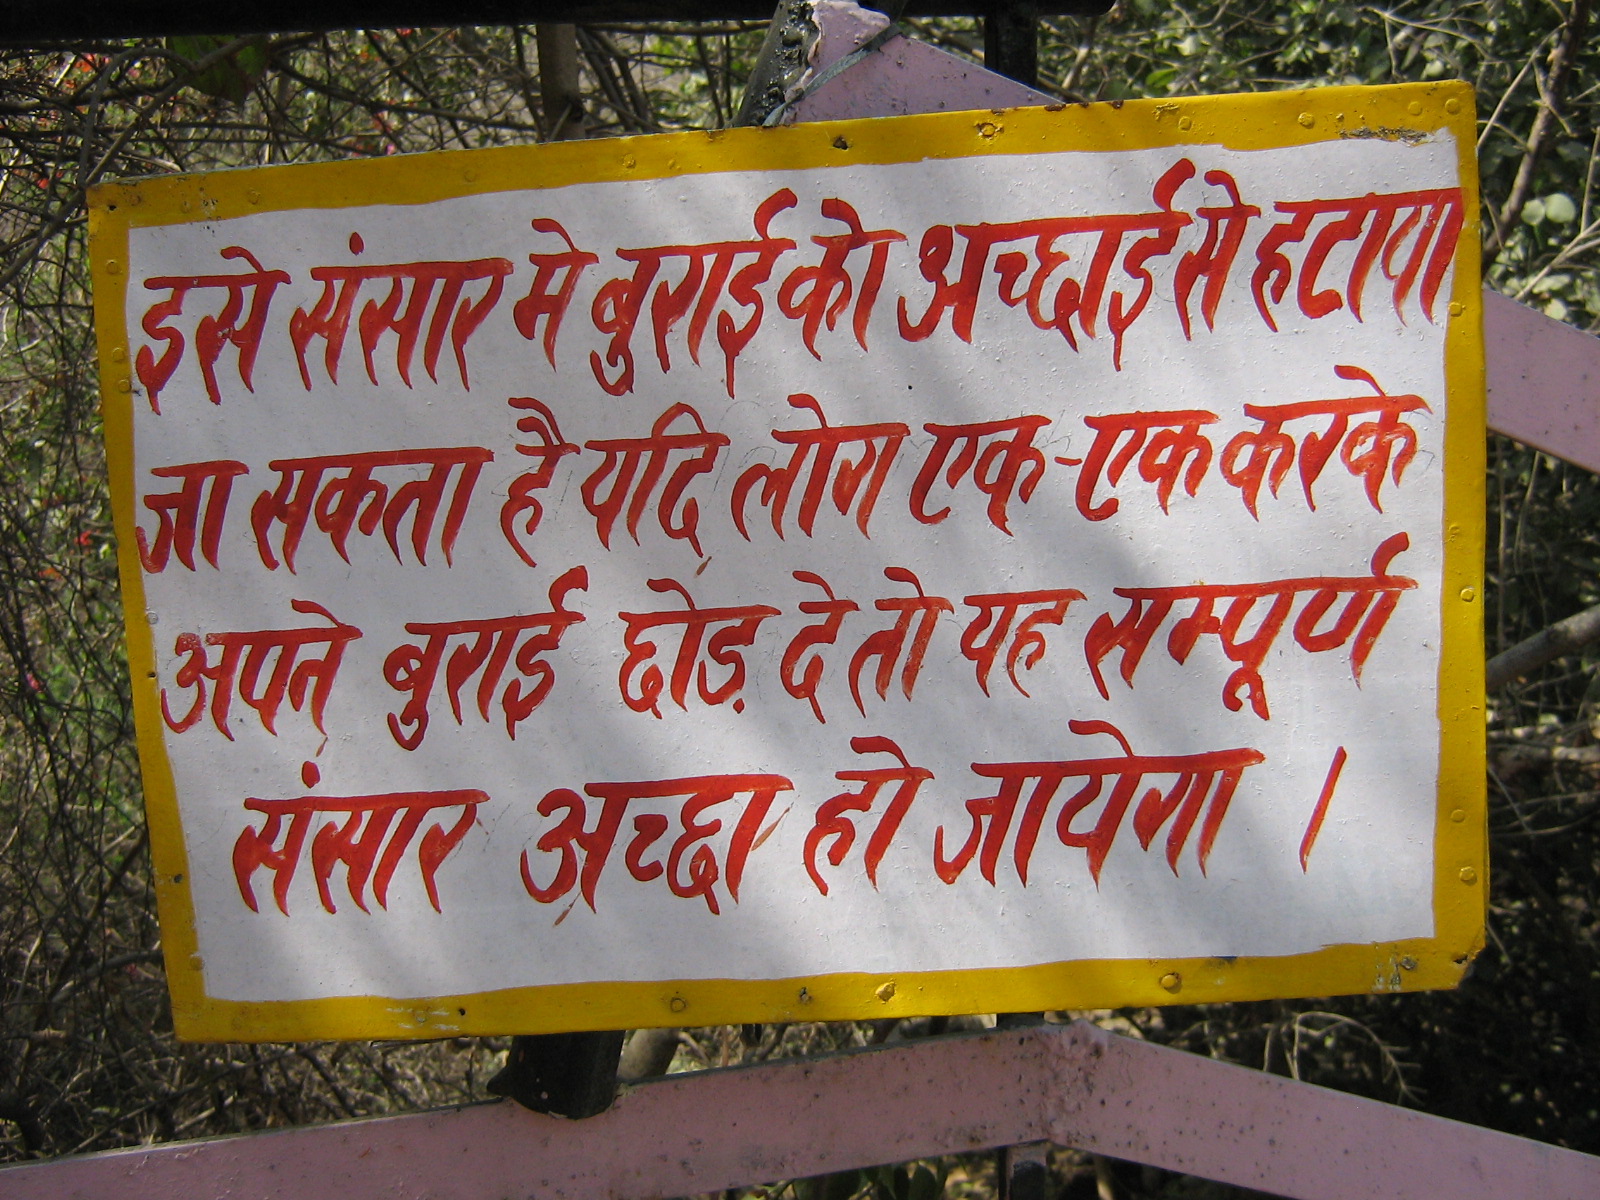 इसे संसार मे बुराई को अच्छाई से हटाया
जा सकता है यदि लोग एक-एक करके
अपने बुराई छोड़ दे तो यह सम्पूर्ण
संसार अच्छा हो जायेगा ।